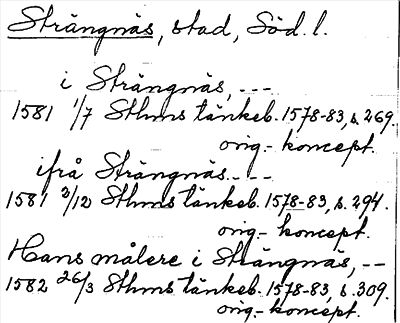 Strängnäs, stad, Söd. l.
i Strängnäs, ---
1581 1/7 Sthms tänkeb. 1578-83, s. 269.
orig.- koncept.
ifrå Strängnäs. - -
1581 2/12 Sthms tänkeb. 1578-83, s. 294.
orig.- koncept.
Hans målere i Strängnäs, --
1582 26/3 Sthms tänkeb. 1578-83, s. 309.
orig.- koncept.